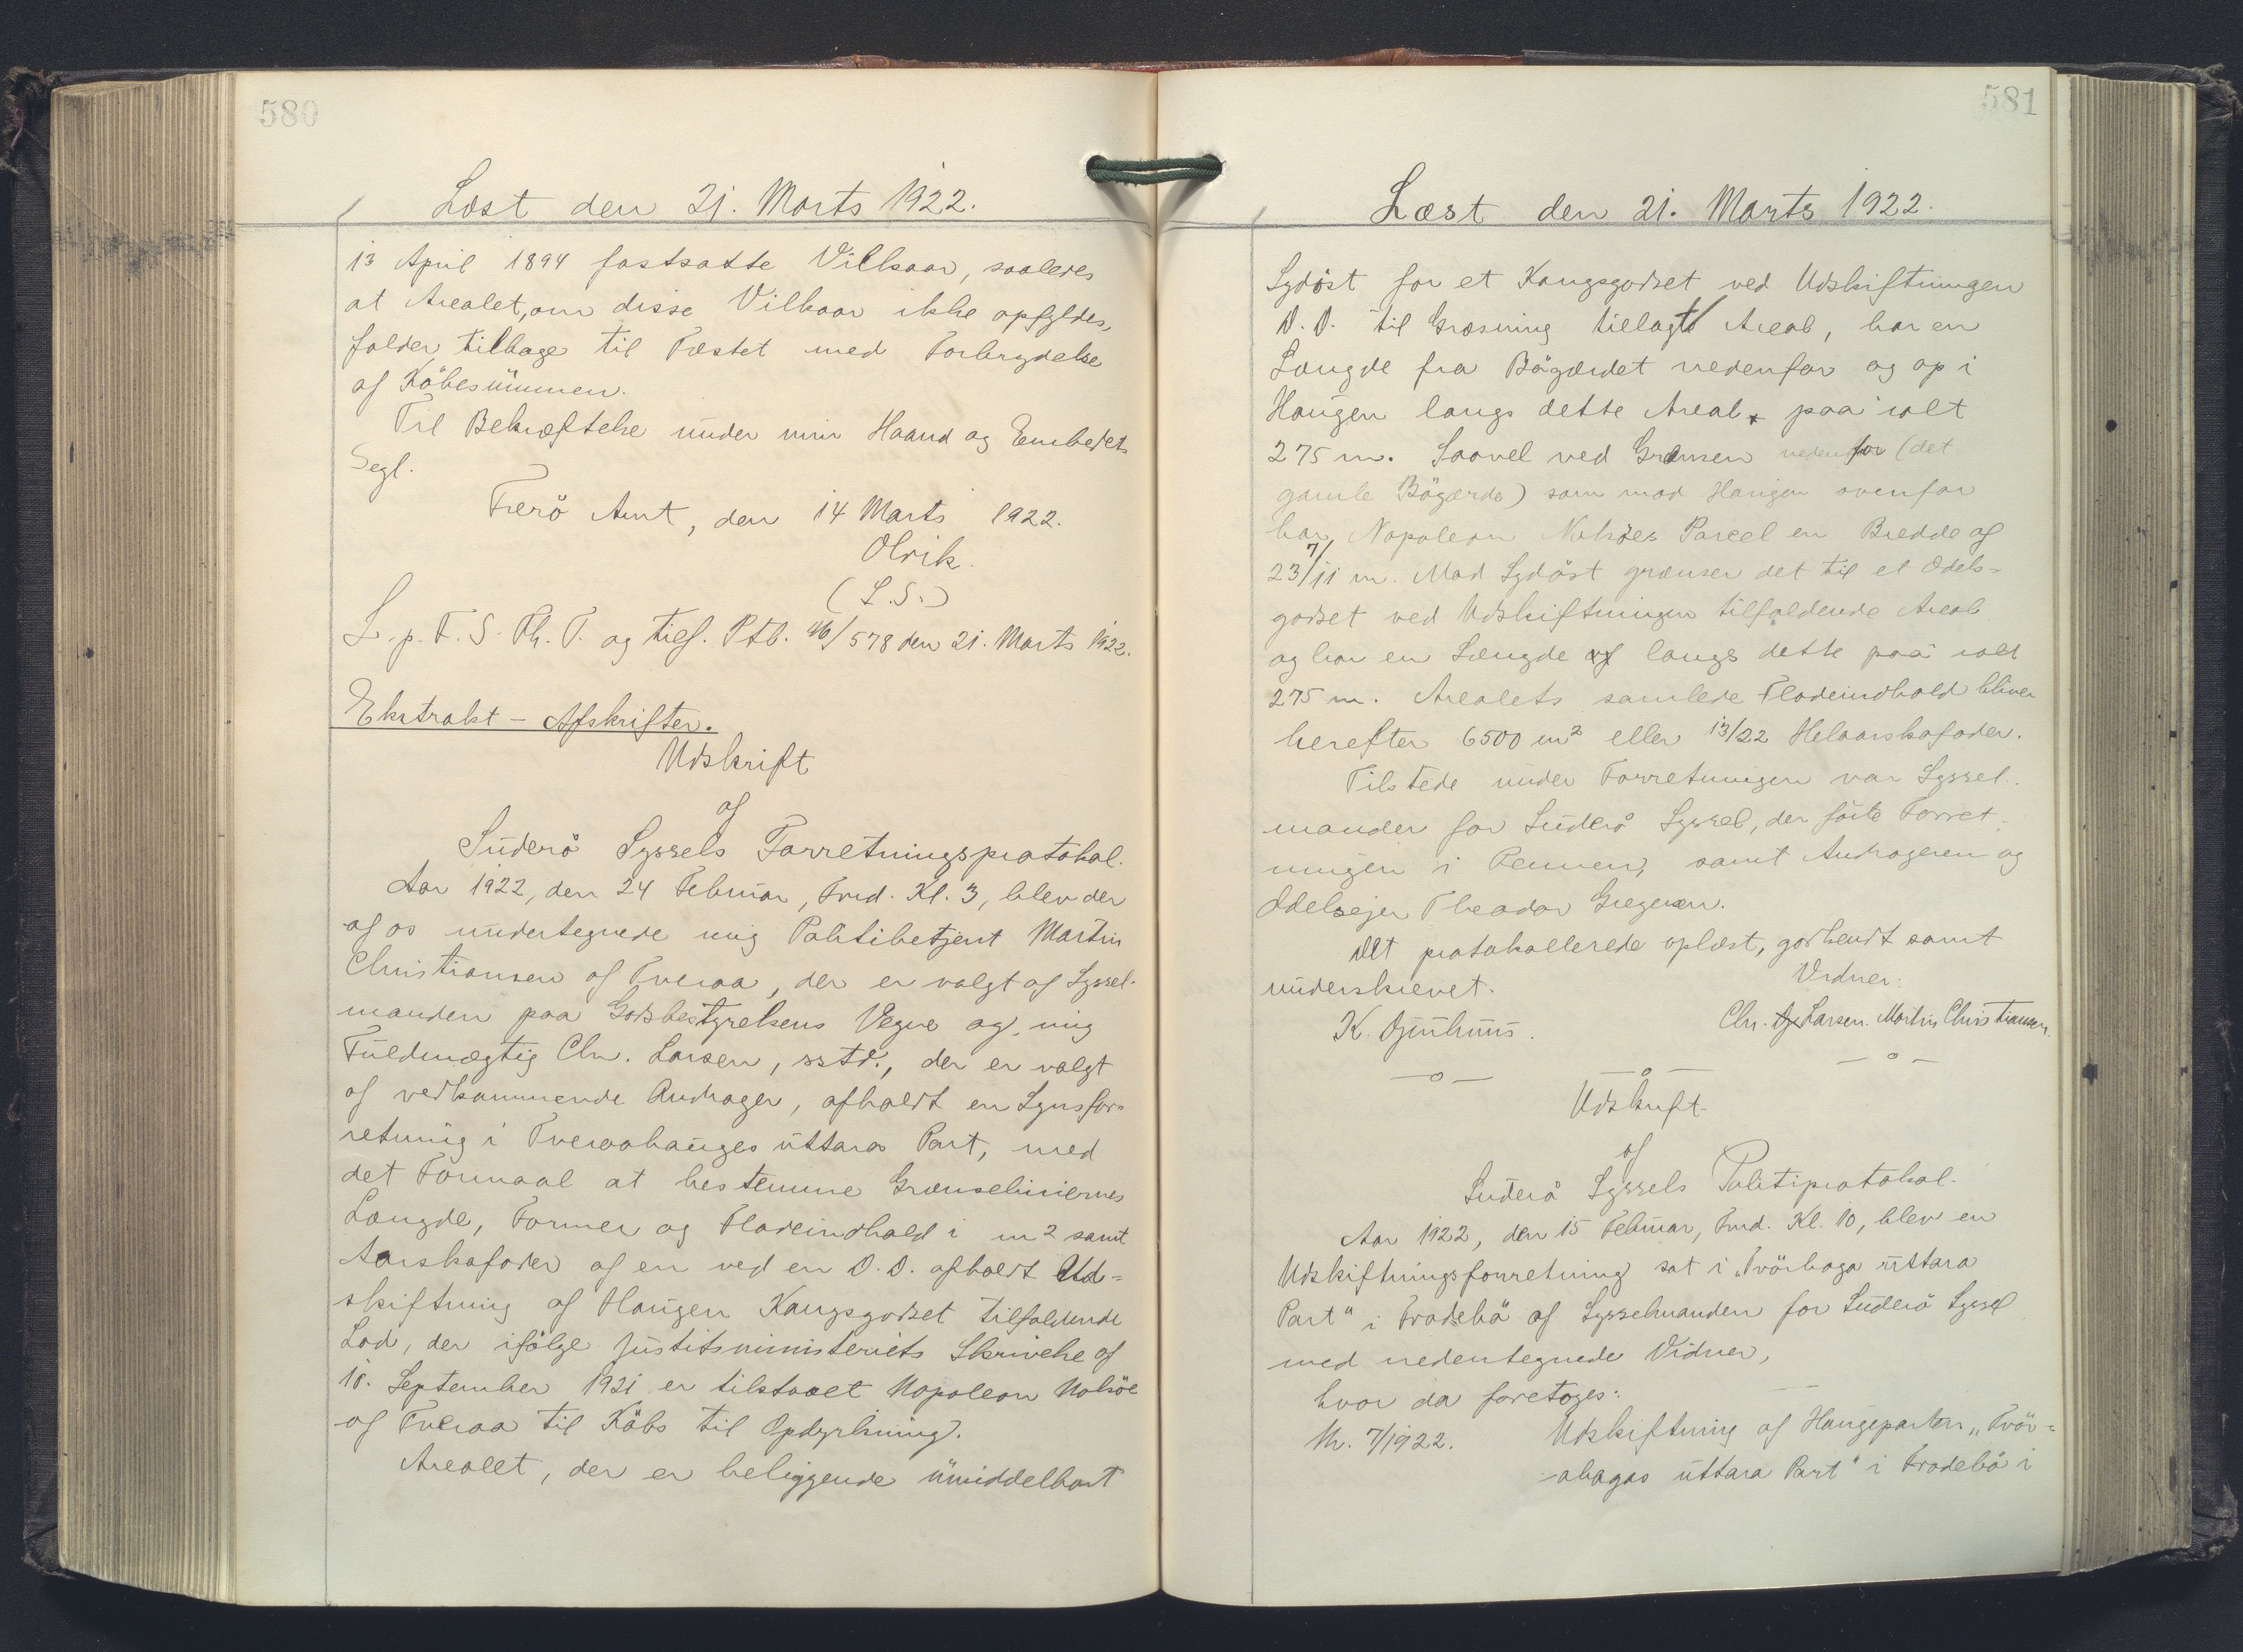 580
Læst den 21. Marts 1922.
13 April 1894 fastsatte Vilkaar, saaledes
at Arealet, om disse Vilkaar ikke opfyldes,
falder tilbage til Fæstet med Forbrydelse
af Købesummen.
Til Bekræftelse under min Haand og Embedets
Segl.
Færö Amt, den 14 Marts 1922.
Olrik.
(L.S.)
L. p. F. S. Th. T. og tilf. Ptb. 46/578 den 21. Marts 1922.
Ekstrakt - Afskrifter.
Udskrift
af
Suderö Syssels Forretningsprotokol.
Aar 1922, den 24 Februar, Fmd. Kl. 3, blev der
af os undertegnede mig Politibetjent Martin
Christiansen af Tveraa, der er valgt af Syssel-
manden paa Godsbestyrelsens Vegne og mig
Fuldmægtig Chr. Larsen, sstd., der er valgt
af vedkommende Andrager, afholdt en Synsfor-
retning i Tveraahauges uttara Part, med
det Formaal at bestemme Grænseliniernes
Længde, Former og Fladeindhold i m2 samt
Aarskofoder af en ved en D.D. afholdt Ud=
skiftning af Haugen Kongsgodset tilfaldende
Lod, der ifölge Justitsministeriets Skrivelse af
10. September 1921 er tilstaaet Napoleon Nolsöe
af Tveraa til Købs til Opdyrkning.
Arealet, der er beliggende umiddelbart
581
Læst den 21. Marts 1922.
Sydöst for et Kongsgodset ved Udskiftningen
D.D. til Græsning tillagt Areal, har en
Længde fra Bögærdet nedenfor og op i
Haugen langs dette Areal paa ialt
275 m. Saavel ved Grænsen nedenfor (det
gamle Bögærde) som mod Haugen ovenfor
har Napoleon Nolsöes Parcel en Bredde af
23 7/11 m. Mod Sydöst grænser det til et Odels-
godset ved Udskiftningen tilfaldende Areal
og har en Længde af langs dette paa ialt
275 m. Arealets samlede Fladeindhold bliver
herefter 6500 m2 eller 13/22 Helaarskofoder.
Tilstede under Forretningen var Syssel-
manden for Suderö Syssel, der förte Forret-
ningen i Pennen, samt Andrageren og
Odelsejer Theodor Gregersen.
Det protokollerede oplæst, godkendt samt
underskrevet.
Vidner:
K. Djurhuus.
Chr. Larsen. Martin Christiansen.
—o—
—o—
—o—
Udskrift
af
Suderö Syssels Politiprotokol.
Aar 1922, den 15 Februar, Fmd. Kl. 10, blev en
Udskiftningsforretning sat i „Tvörhaga uttara
Part" i Frodebö af Sysselmanden for Suderö Syssel
med nedentegnede Vidner,
hvor da foretoges:
Nr. 7/1922.
Udskiftning af Haugeparten „Tvör=
ahagas uttara Part" i Frodebö i